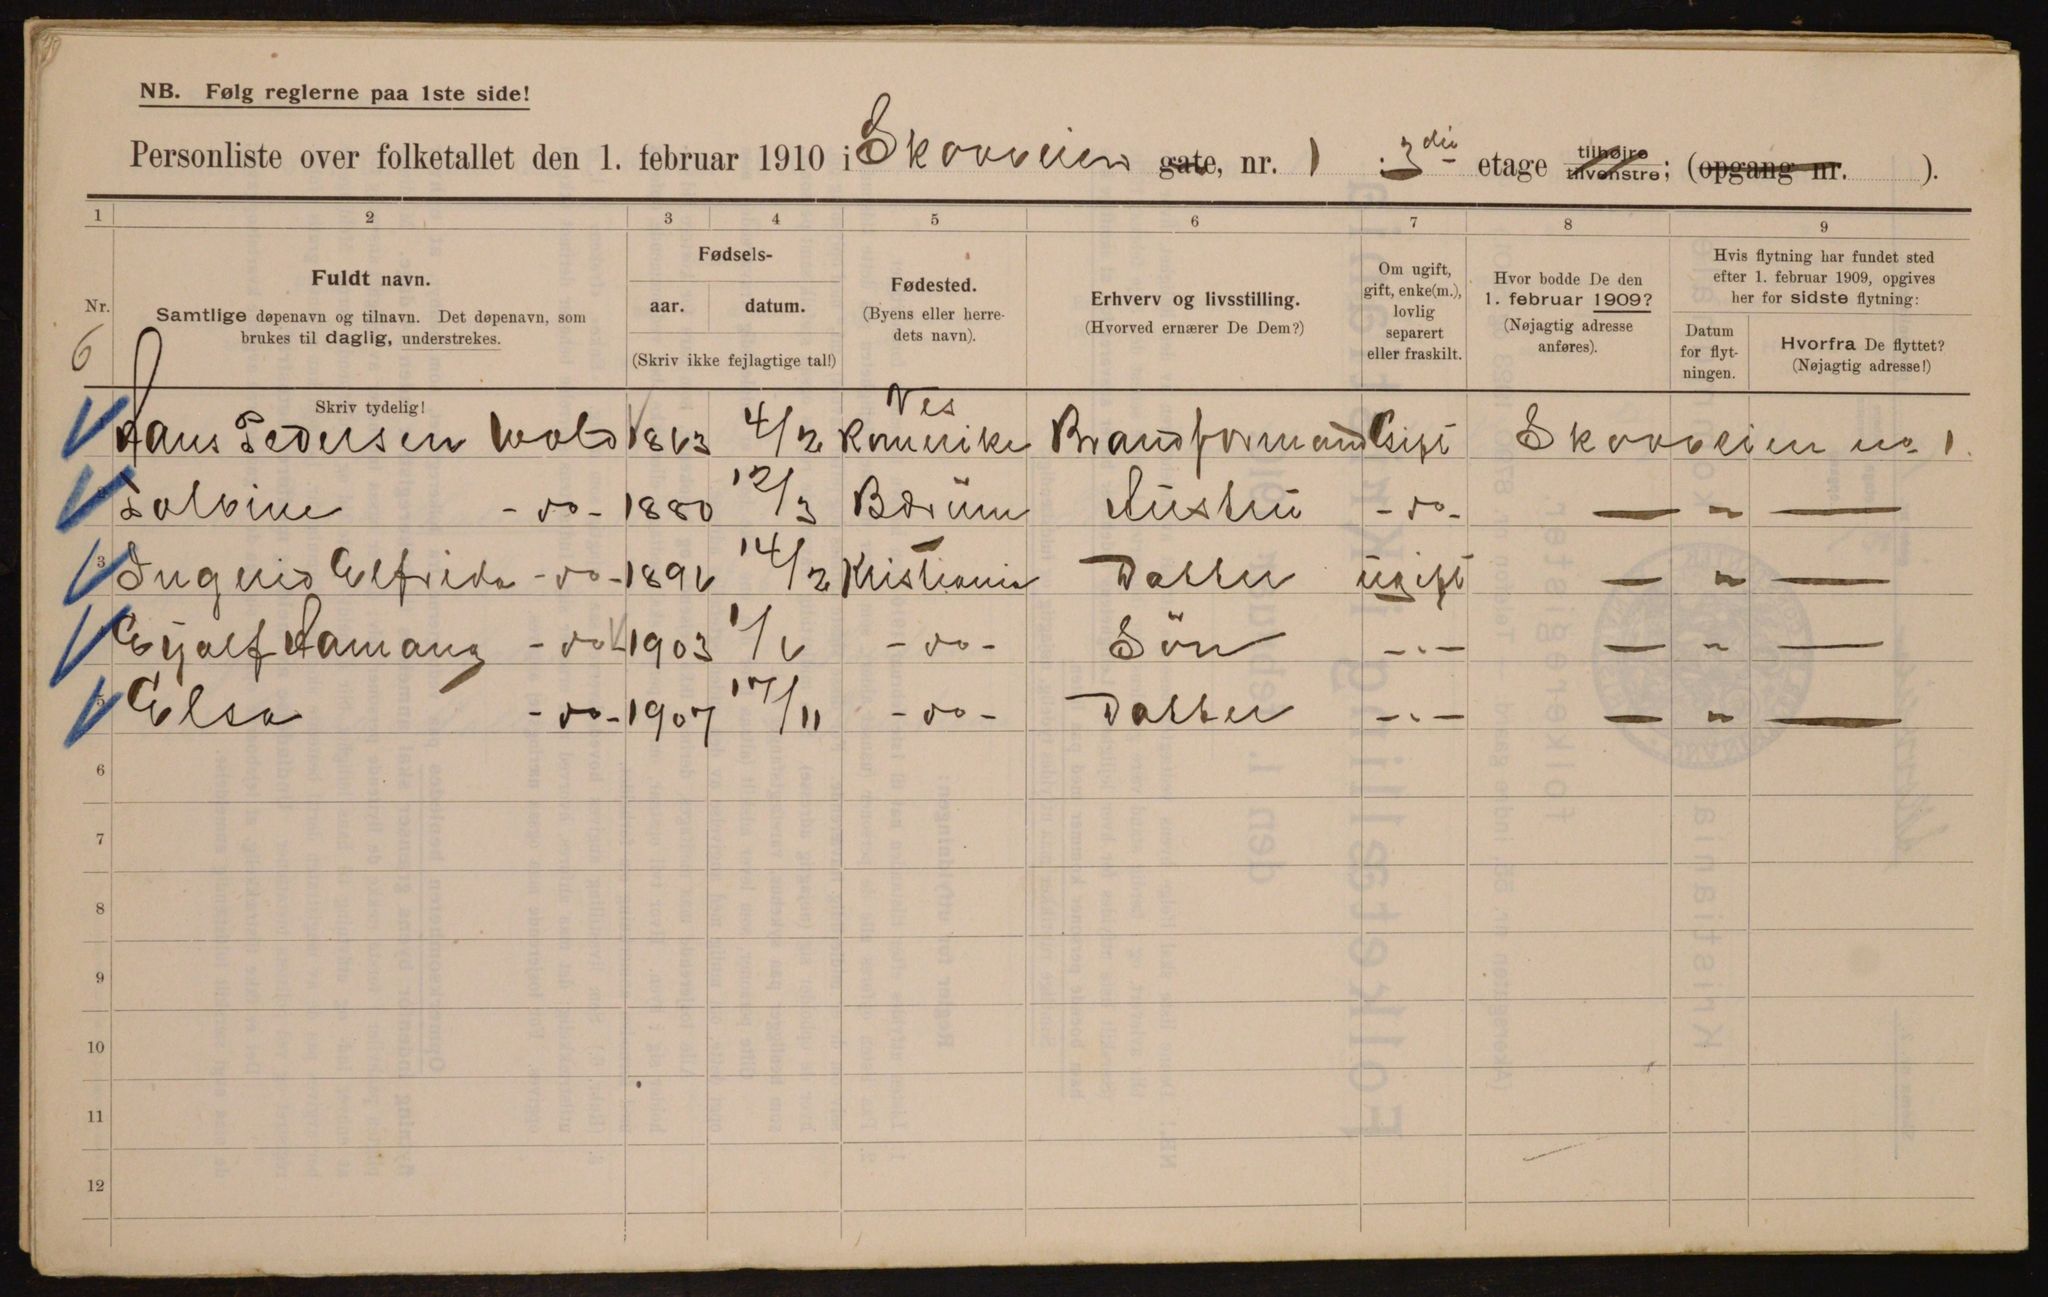 NB. Følg reglerne paa 1ste side!
Personliste over folketallet den 1. februar 1910 i Skovveien gate, nr. 1 : 3die etage tilhøjre tilvenstre; (opgang nr. ).
1 2 3 4 5 6 7 8 9
Nr. 6
Fuldt navn.
Samtlige døpenavn og tilnavn. Det døpenavn, som
brukes til daglig, understrekes.
Fødsels-
aar. datum.
(Skriv ikke fejlagtige tal!)
Fødested.
(Byens eller herre-
dets navn).
Erhverv og livsstilling.
(Hvorved ernærer De Dem?)
Om ugift,
gift, enke(m.),
lovlig
separert
eller fraskilt.
Hvor bodde De den
1. februar 1909?
(Nøjagtig adresse
anføres).
Hvis flytning har fundet sted
efter 1. februar 1909, opgives
her for sidste flytning:
Datum
for flyt-
ningen.
Hvorfra De flyttet?
(Nøjagtig adresse!)
Skriv tydelig!
Hans Pedersen Wold 1863 4/2 Nes Romerike Brandformand Gift Skovveien no 1.
-do- 1880 12/3 Bærüm Hüstrü -do- — " —
3 Ingrid Elfrida -do- 1896 14/2 Kristiania Datter ügift — " —
-do- 1903 1/6 -do- Sön -"- — " —
5 Elsa -do- 1907 17/11 -do- Datter -"- — " —
6
7
8
9
10
11
12